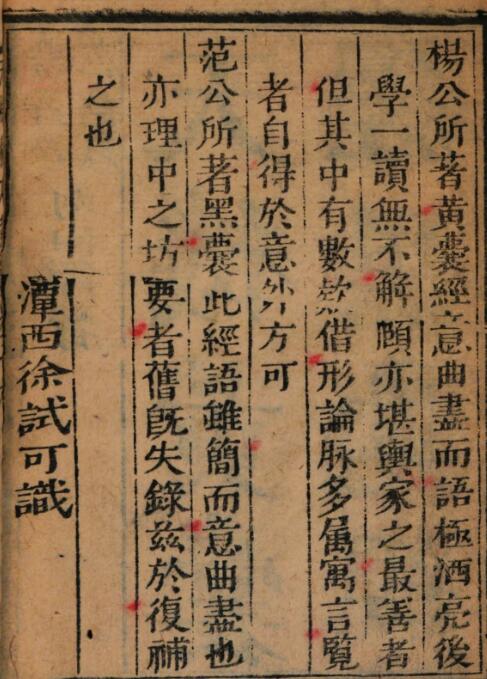 楊公所著黃囊經意曲盡而語極洒亮後
學一讀無不解頤亦堪輿家之最善者
但其中有數欵借形論脉多属寓言覽
者自得於意外方可
范公所著黑囊此經語雖簡而意曲盡也
亦理中之坊要者舊旣失錄兹於復補
之也
潭西徐試可識